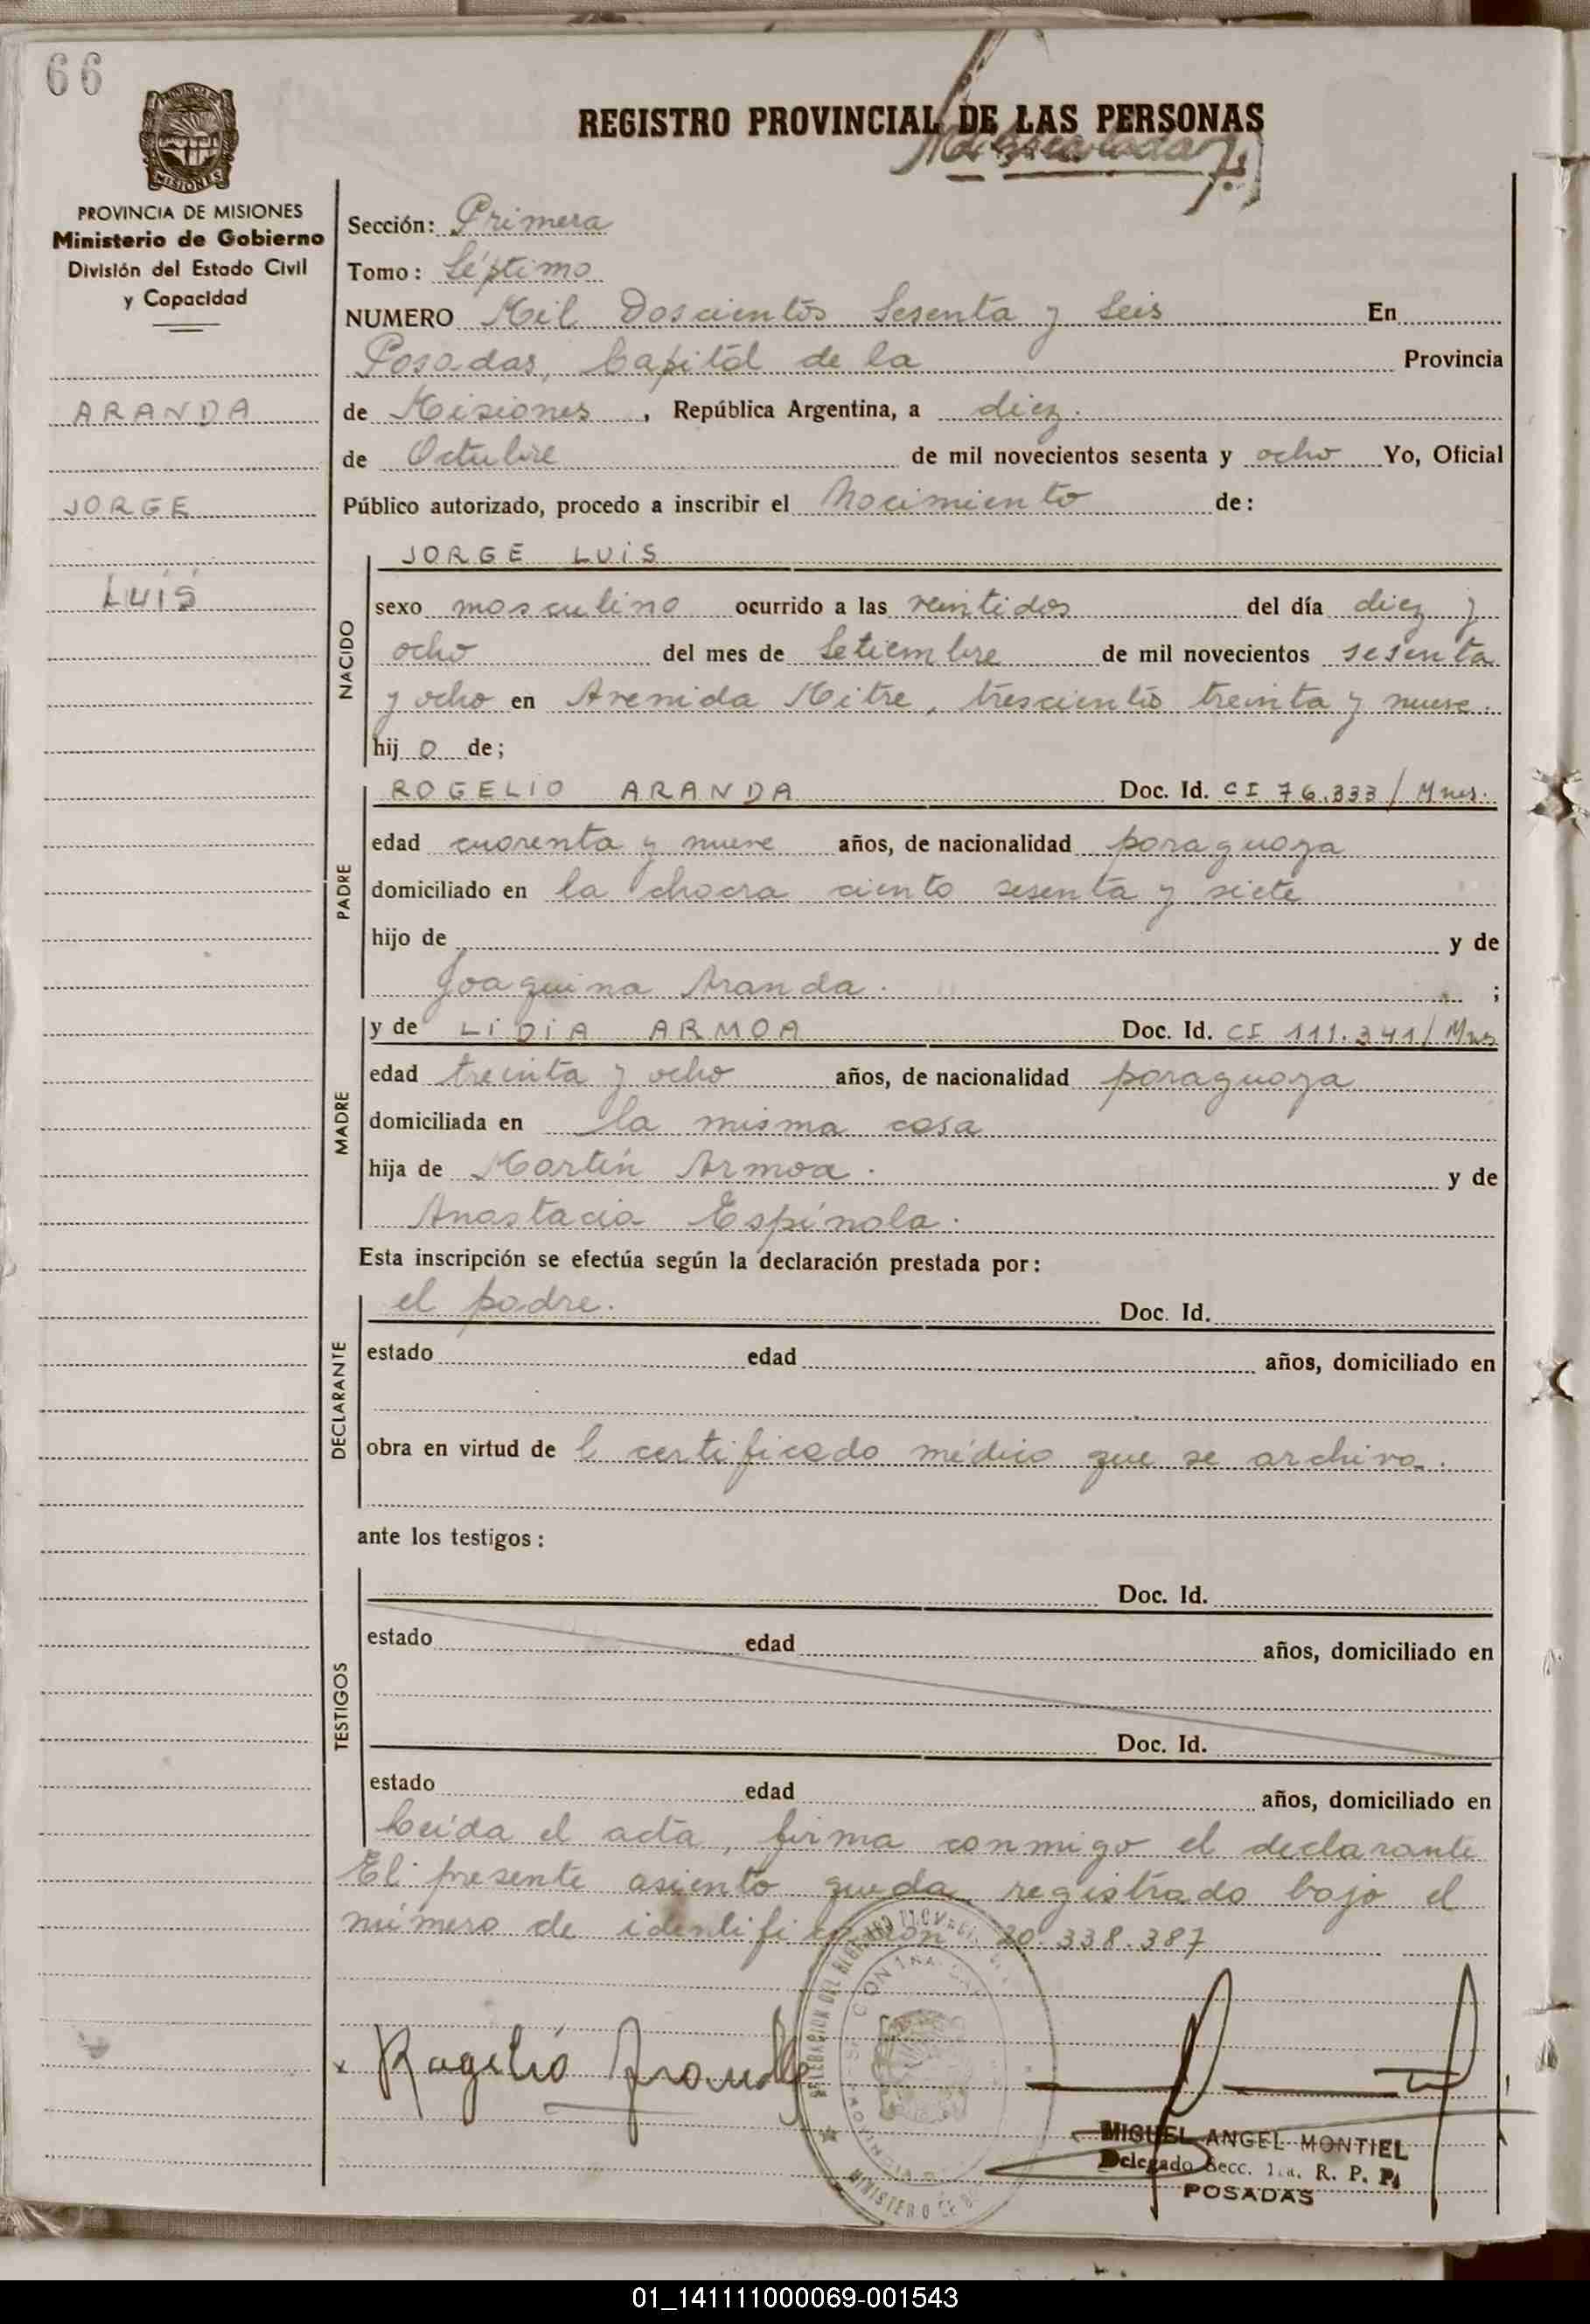 66
REGISTRO PROVINCIAL DE LAS PERSONAS
PROVINCIA DE MISIONES
Ministerio de Gobierno
División del Estado Civil
y Capacidad
ARANDA
JORGE
LUIS
Sección: Primera
Tomo: Séptimo
NUMERO Mil Doscientos Sesenta y Seis En
Posadas, Capital de la Provincia
de Misiones, República Argentina, a diez.
de Octubre de mil novecientos sesenta y ocho Yo, Oficial
Público autorizado, procedo a inscribir el Nacimiento de:
NACIDO
JORGE LUIS
sexo masculino ocurrido a las veintidos del día diez y
ocho del mes de Setiembre de mil novecientos sesenta
y ocho en Avenida Mitre, trescientos treinta y nueve.
hijo de;
PADRE
ROGELIO ARANDA Doc. Id. CI 76.333/Mnes.
edad cuarenta y nueve años, de nacionalidad paraguaya
domiciliado en la chacra ciento sesenta y siete
hijo de y de
Joaquina Aranda. ;
MADRE
y de LIDIA ARMOA Doc. Id. CI 111.341/Mnes
edad treinta y ocho años, de nacionalidad paraguaya
domiciliada en la misma casa
hija de Martín Armoa. y de
Anastacia Espínola.
Esta inscripción se efectúa según la declaración prestada por:
DECLARANTE
el padre. Doc. Id.
estado edad años, domiciliado en
obra en virtud de l certificado médico que se archiva.
ante los testigos:
TESTIGOS
Doc. Id.
estado edad años, domiciliado en
Doc. Id.
estado edad años, domiciliado en
Leída el acta, firma conmigo el declarante
El presente asiento queda registrado bajo el
número de identificación 20.338.387
x Rogelio Aranda
MIGUEL ANGEL MONTIEL
Delegado Secc. 1ra. R. P. P.
POSADAS
01_141111000069-001543